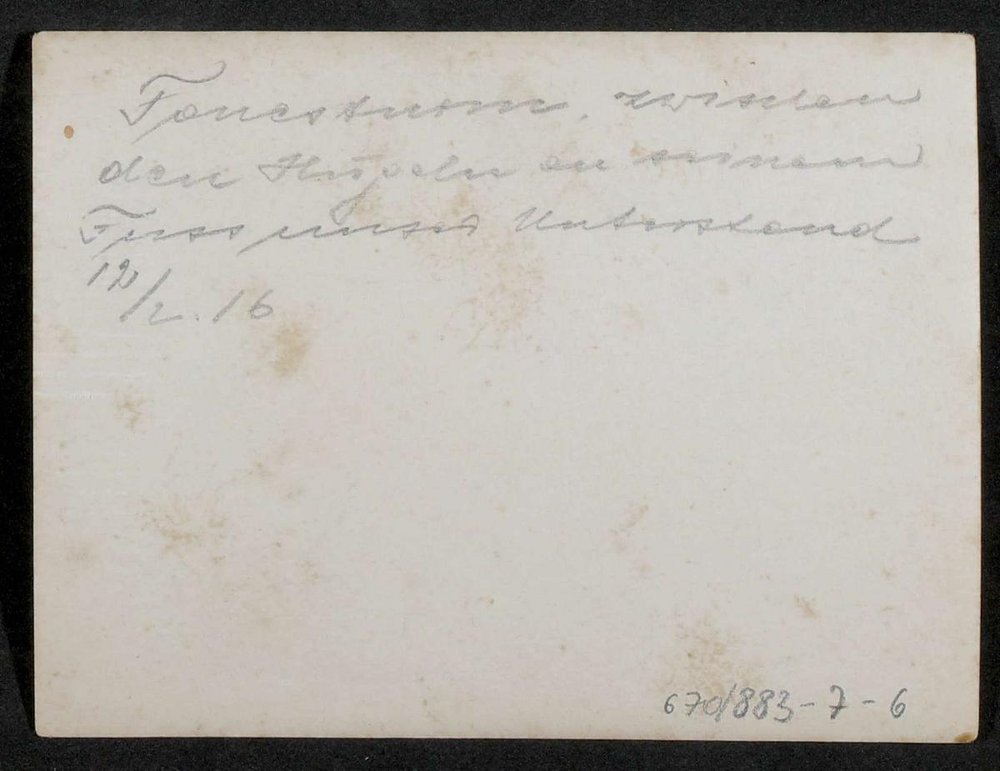 zwischen
den Hügeln an seinem
Fuss unser Unterstand
12/2. 16
670/883-7-6